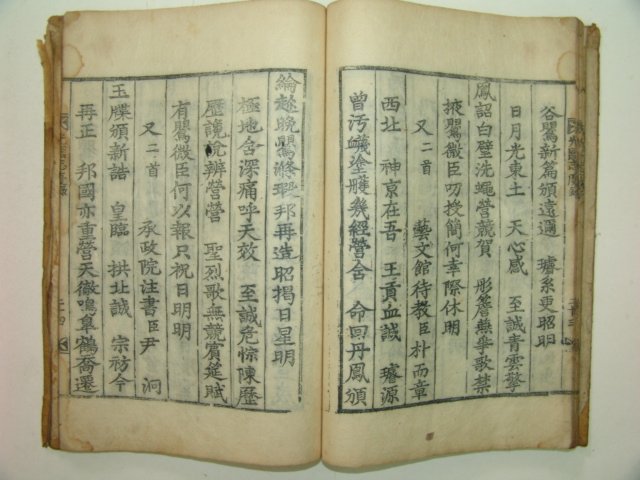 谷鶯新篇頒遠邇 璿系更昭明
日月光東土 天心感 至誠青雲擎
鳳詔白璧洗蠅營競賀 彤簷無爭歌禁
掖鶯微臣叨授簡何幸際休明
又二首 藝文館待教臣朴而章
西址 神京在吾 王貢血誠 璿源
曾汚衊塗 幾經營舍 命回丹鳳頒
綸趁晩鶯滌 邦再造昭揭日星明
極地含深痛呼天效 至誠危悰陳歷
歷讒說辨營營 聖烈歌無競賓筵賦
有鶯微臣何以報只祝日明明
又二首 承政院注書臣尹泂
玉牒頒新誥 皇臨 拱北誠 宗祊今
再正 邦國亦重營天徹鳴皐鶴喬還